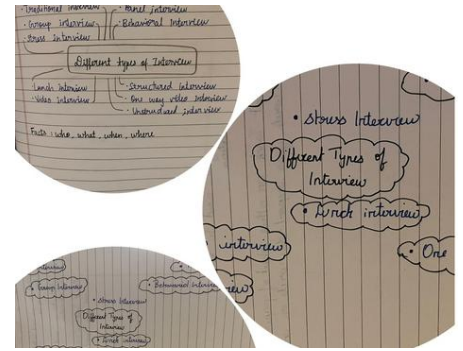 • Traditional Interview
• Panel interview
• Group interview
• Behavioral Interview
• Stress Interview
Different types of Interview
Lunch Interview
• Structured Interview
• Video Interview
• One way video Interview
• Unstructured interview
Facts : who, what, when, where
• Stress Interview
Different Types of
Interview
• Lunch interview
interview
• One
• Group Interview
• Behavioral Interview
• Stress Interview
Different Types of
Interview
• Lunch interview